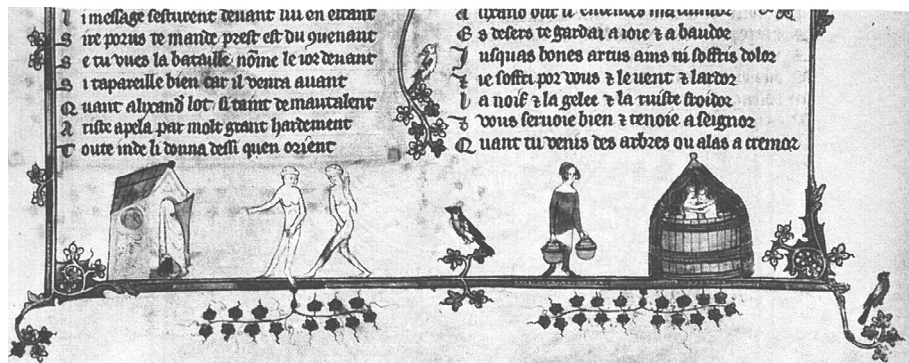 Li message sesturent deuant lui en estant
Sire porus te mande prest est du quenant
Se tu vues la bataille nōme le ior deuant
Si tapareille bien car il venra auant
Quant alixand lot si taint de mautalent
Ariste apela par molt grant hardement
Toute inde li donna dessi quen orient
Es desers te gardai a ioie ⁊ a baudor
Jusquas bones artus ains ni soffris dolor
⁊ ie soffri por vous ⁊ le uent ⁊ lardor
La noif ⁊ la gelee ⁊ la ruiste froidor
⁊ vous seruoie bien ⁊ tenoie a seignor
Quant tu venis des arbres ou alas a cremor